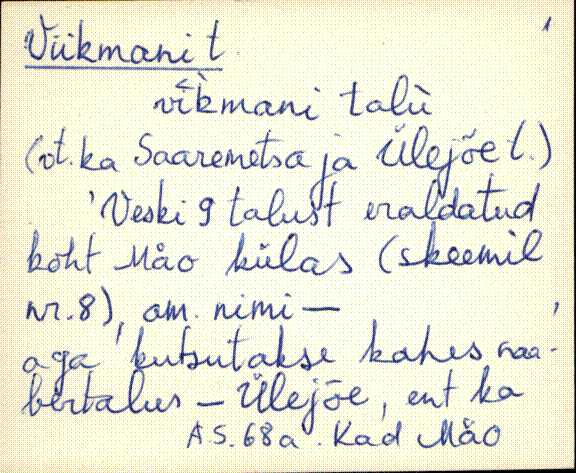 Viikmani t.
vi̬kmani talù
(vt. ka Saaremetsa ja Ülejõe t.)
'Veski 9 talust eraldatud
koht Mäo külas (skeemil
nr. 8), am. nimi —
aga 'kutsutakse kahes naa-
bertalus – Ülejõe, ent ka
A.S. 68a. Kad Mäo